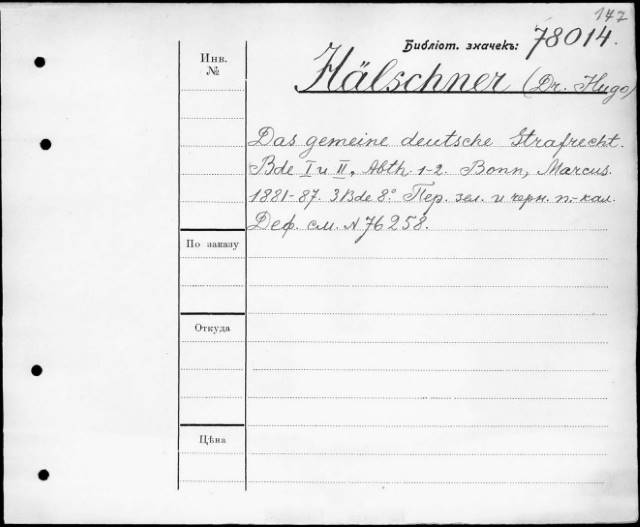 147
Библіот. значекъ: 78014.
Инв.
№
Hälschner (Dr. Hugo)
Das gemeine deutsche Strafrecht.
Bde I u II, Abth. 1-2. Bonn, Marcus.
1881-87. 3 Bde 8° Пер. зел. и черн. п.-кал.
Деф. см. N 76258.
По заказу
Откуда
Цѣна